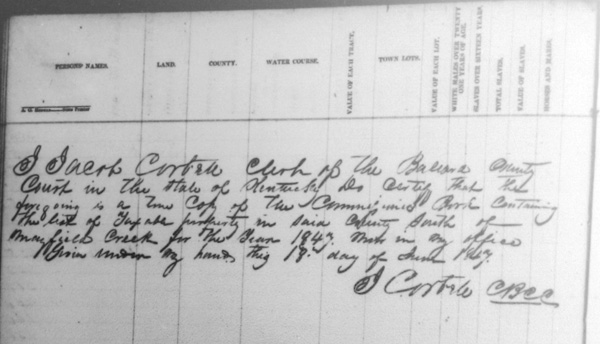 PERSONS NAMES. LAND. COUNTY. WATER COURSE. VALUE OF EACH TRACT. TOWN LOTS. VALUE OF EACH LOT. WHITE MALES OVER TWENTY ONE YEARS OF AGE. SLAVES OVER SIXTEEN YEARS. TOTAL SLAVES. VALUE OF SLAVES. HORSES AND MARES.
I Jacob Corbile Clerk of the Ballard County
Court in the State of Kentucky Do Certify that the
foregoing is a true Copy of the Commissioners Book Containing
the list of Taxable property in said County South of
Mayfield Creek for the Year 1847. Now in my office
Given under my hand this 18th day of June 1847.
J Corbile CBCC